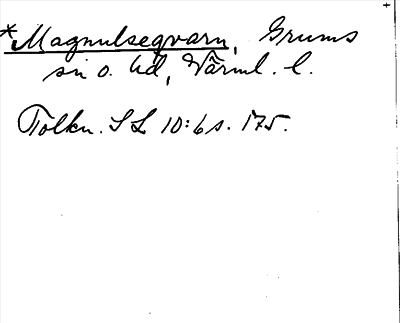 *Magnulsegvarn, Grums
sn o. hd, Värml. l.
Tolkn. SL 10:6 s. 175.